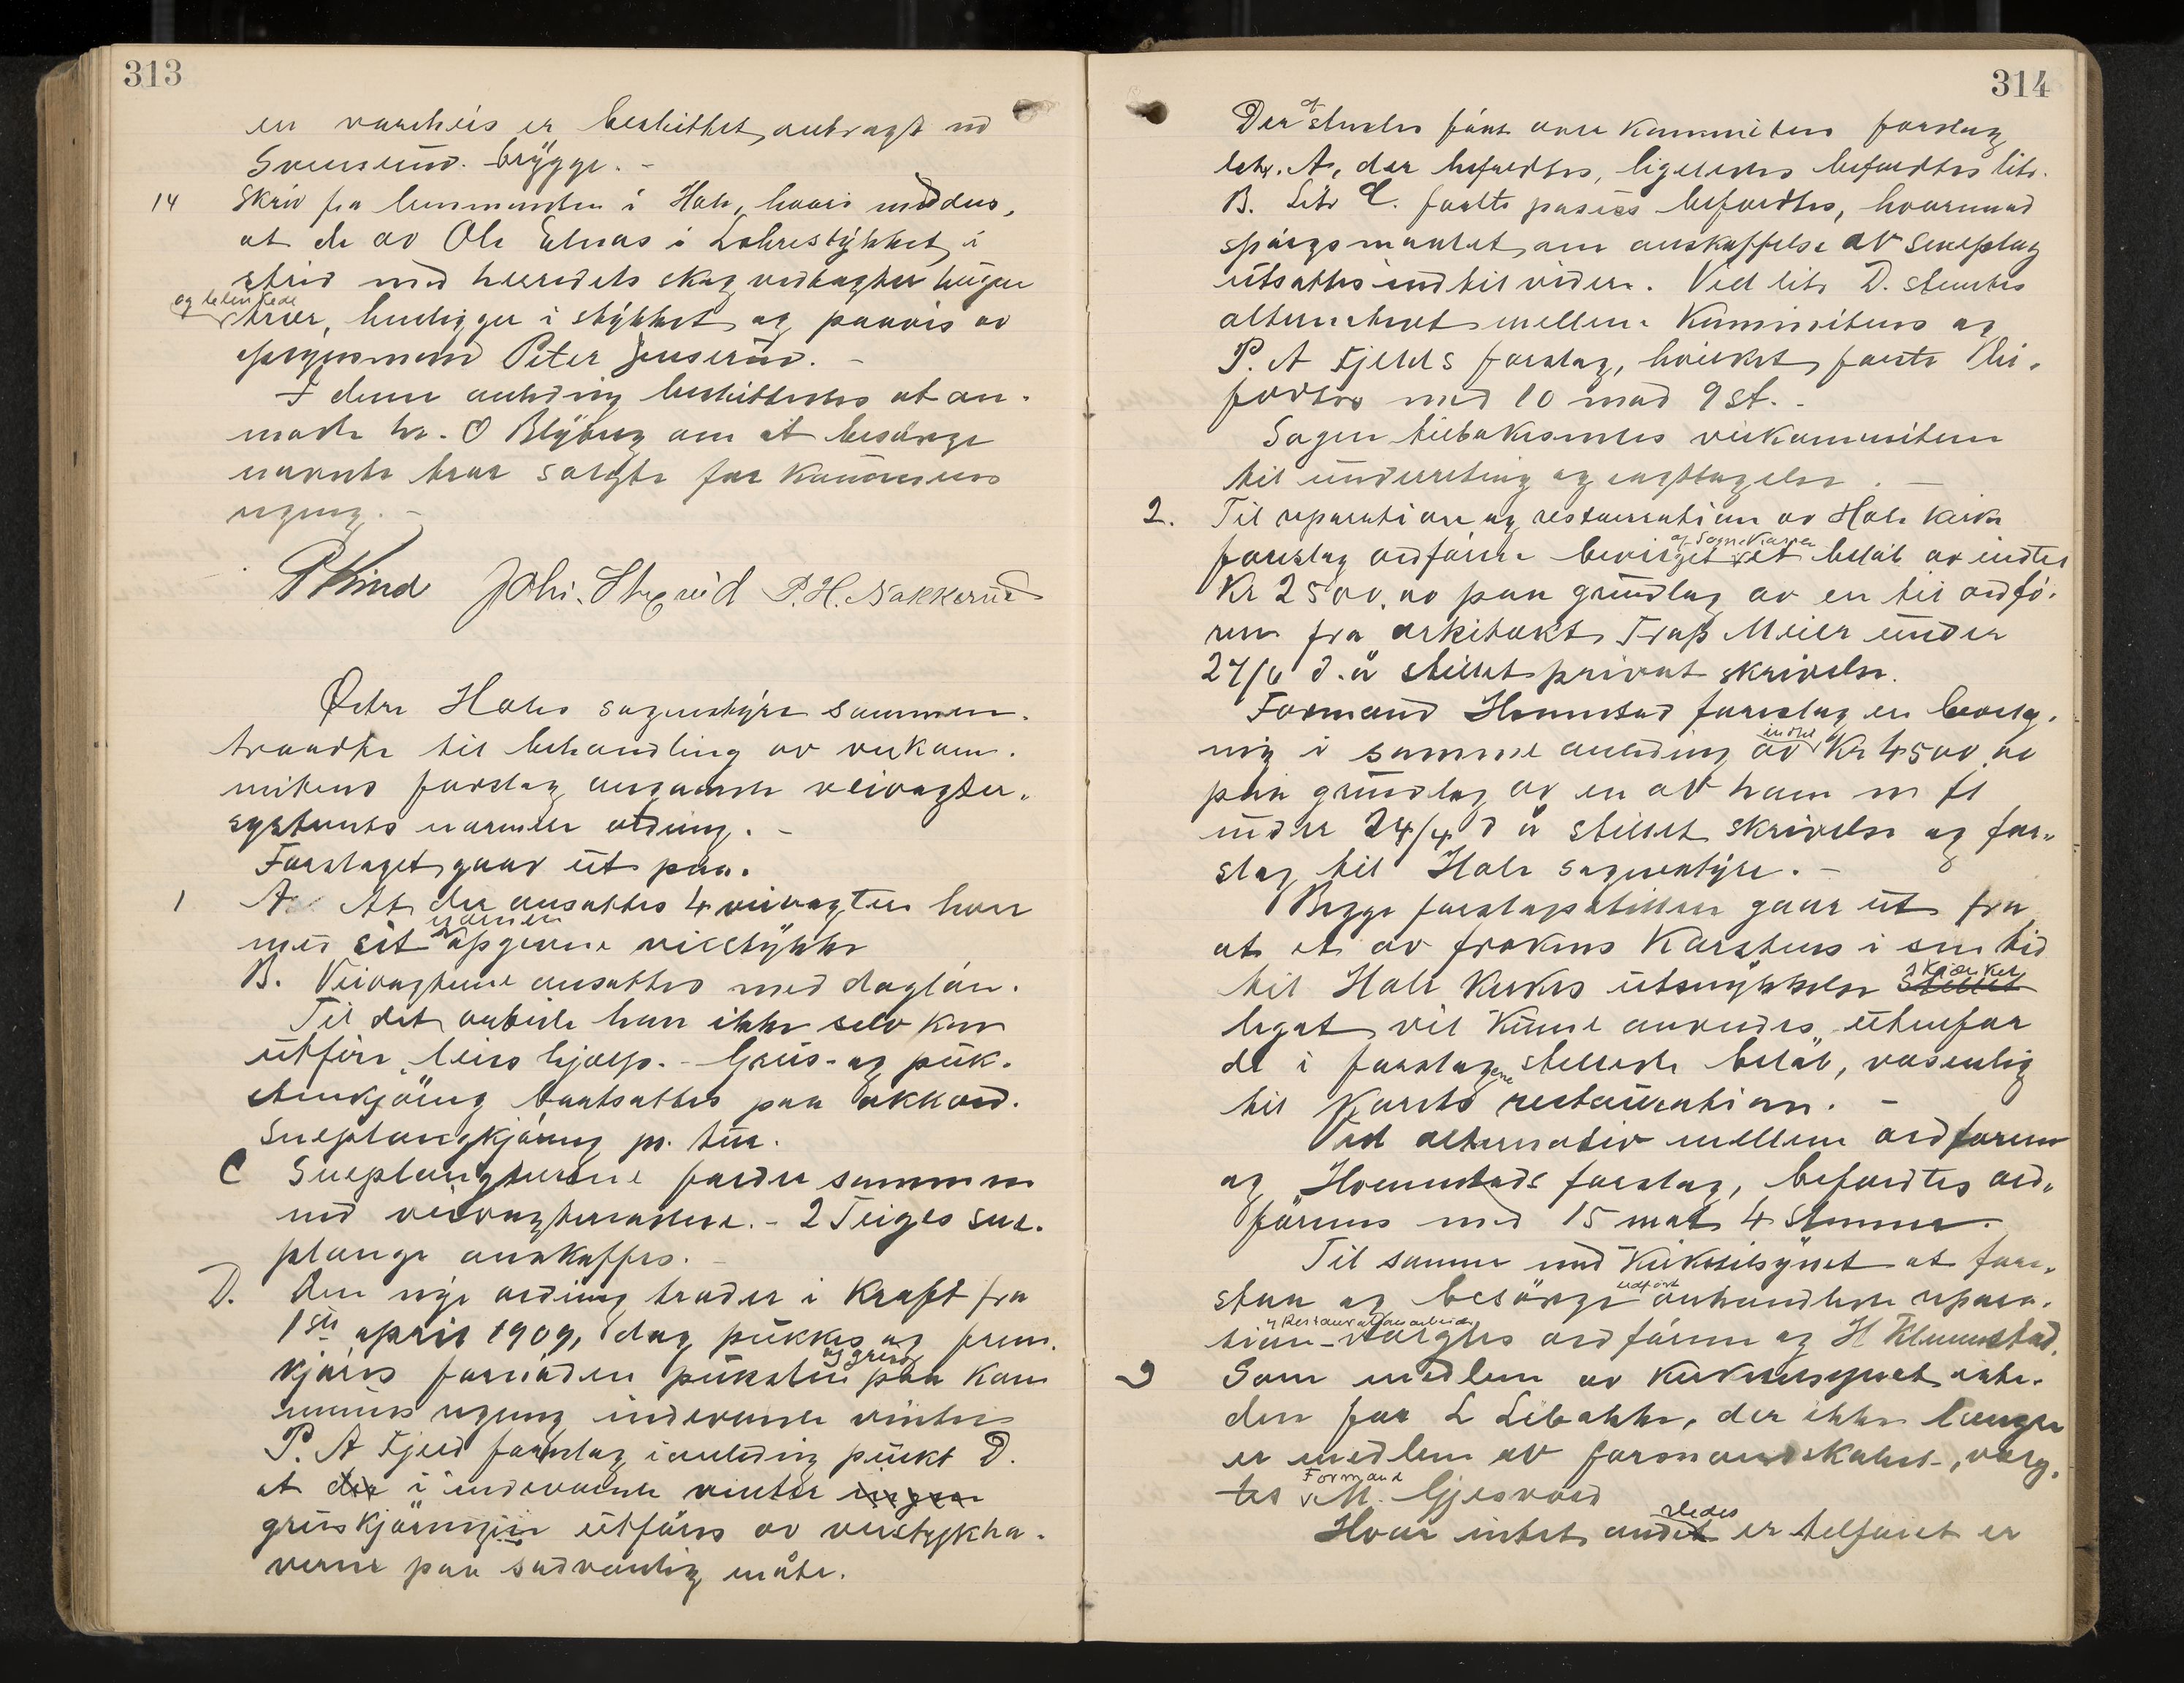 313
en vareheis er besluttet anbragt ved
Svensrud. brygge. -
14 Skriv fra lensmanden i Hole, hvori meddeles,
at de av Ole Elnæs i Lohrestykket i
strid med herredets skogvedtægter hugne
og blinkede
trær, henligger i stykket og paavis av
opsynsmand Peter Juserud. -
I denne anledning besluttedes at an-
mode hr. O Blyberg om at besørge
nævnte trær solgte for kommunens
regning. -
P Kind Joh. Stxrud P. H. Nakkerud
Østre Holes sognestyre sammen-
traadte til behandling av veikom-
miteens forslag angaaende veivogter-
systemets nærmere ordning. -
Forslaget gaar ut paa.
1 A. At der ansættes 4 veivogtere hver
nærmere
med sit opgivne veistykke
B. Veivogterne ansættes med dagløn.
Til det arbeide han ikke selv kan
utføre leies hjælp. - Grus- og puk-
stenkjøring bortsættes paa akkord.
Sneplougkjøring pr. tur.
C Sneplougturene falder sammen
med veivogterrodene. - 2 Teiges sne-
plouge anskaffes. -
D. Den nye ordning træder i kraft fra
1ste april 1909, dog pukkes og frem-
og grus
kjøres fornøden puksten paa kom
munens regning indeværende vinter
P. A Fjeld forslag i anledning punkt D.
at der i indeværende vinter ingen
gruskjøringen utføres av veistykkha-
verne paa sædvanlig måte.
314
Der stemtes først over kommiteens forslag
og
litr. A, der befordtes, ligeledes befordtes litr.
B. Litr C. første passus befordtes, hvorimod
spørgsmaalet om anskaffelse av sneploug
utsattes indtil videre. Ved litr D. stemtes
alternativt mellem kommiteens og
P. A Fjelds forslag, hvilket første bi-
fordtes med 10 mod 9 st. -
Sagen tilbakesendes veikommiteen
til underretning og iagttagelse. -
2. Til reparation og restauration av Hole kirke
af Sognekassen
foreslog ordføreren bevilget et beløb av indtil
Kr 2500.00 paa grundlag av en til ordfø-
ren fra arkitekt Trap Meier under
27/6 d. å stillet privat skrivelse.
Formand Hønnstad foreslog en bevilg-
indtil
ning i samme anledning av Kr 4500.00
paa grundlag av en av ham m fl
under 24/4 d å stillet skrivelse og for-
slag til Hole sognestyre. -
Begge forslagsstillere gaar ut fra
at et av frøkens Karstens i sin tid
skjænket
til Hole kirkes utsmykkelse stillet
legat vil kunne anvendes utenfor
de i forslagene stillede beløb, væsenlig
til korets restauration. -
Ved alternativ mellem ordføreren
og Hønnstads forslag, befordtes ord-
førens med 15 mot 4 stemmer.
Til sammen med kirketilsynet at fore-
udført
staa og besørge omhandlede repara-
og Restaurationsarbeide
tion - valgtes ordføreren og H Klemmetsrud.
3 Som medlem av kirketilsynet iste-
den for L Libakke, der ikke længer
er medlem av formandskabet, valg-
Formand
tes M. Gjesvold
ledes
Hvor intet andet er tilført er